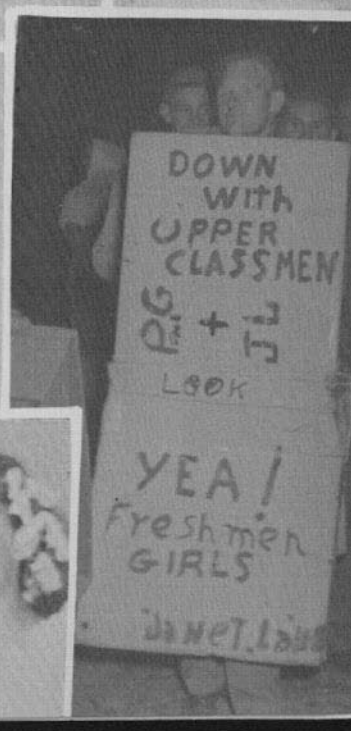 DOWN
With
UPPER
CLASSMEN
P.G + JL
LOOK
YEA!
Freshmen
GIRLS
JANET.